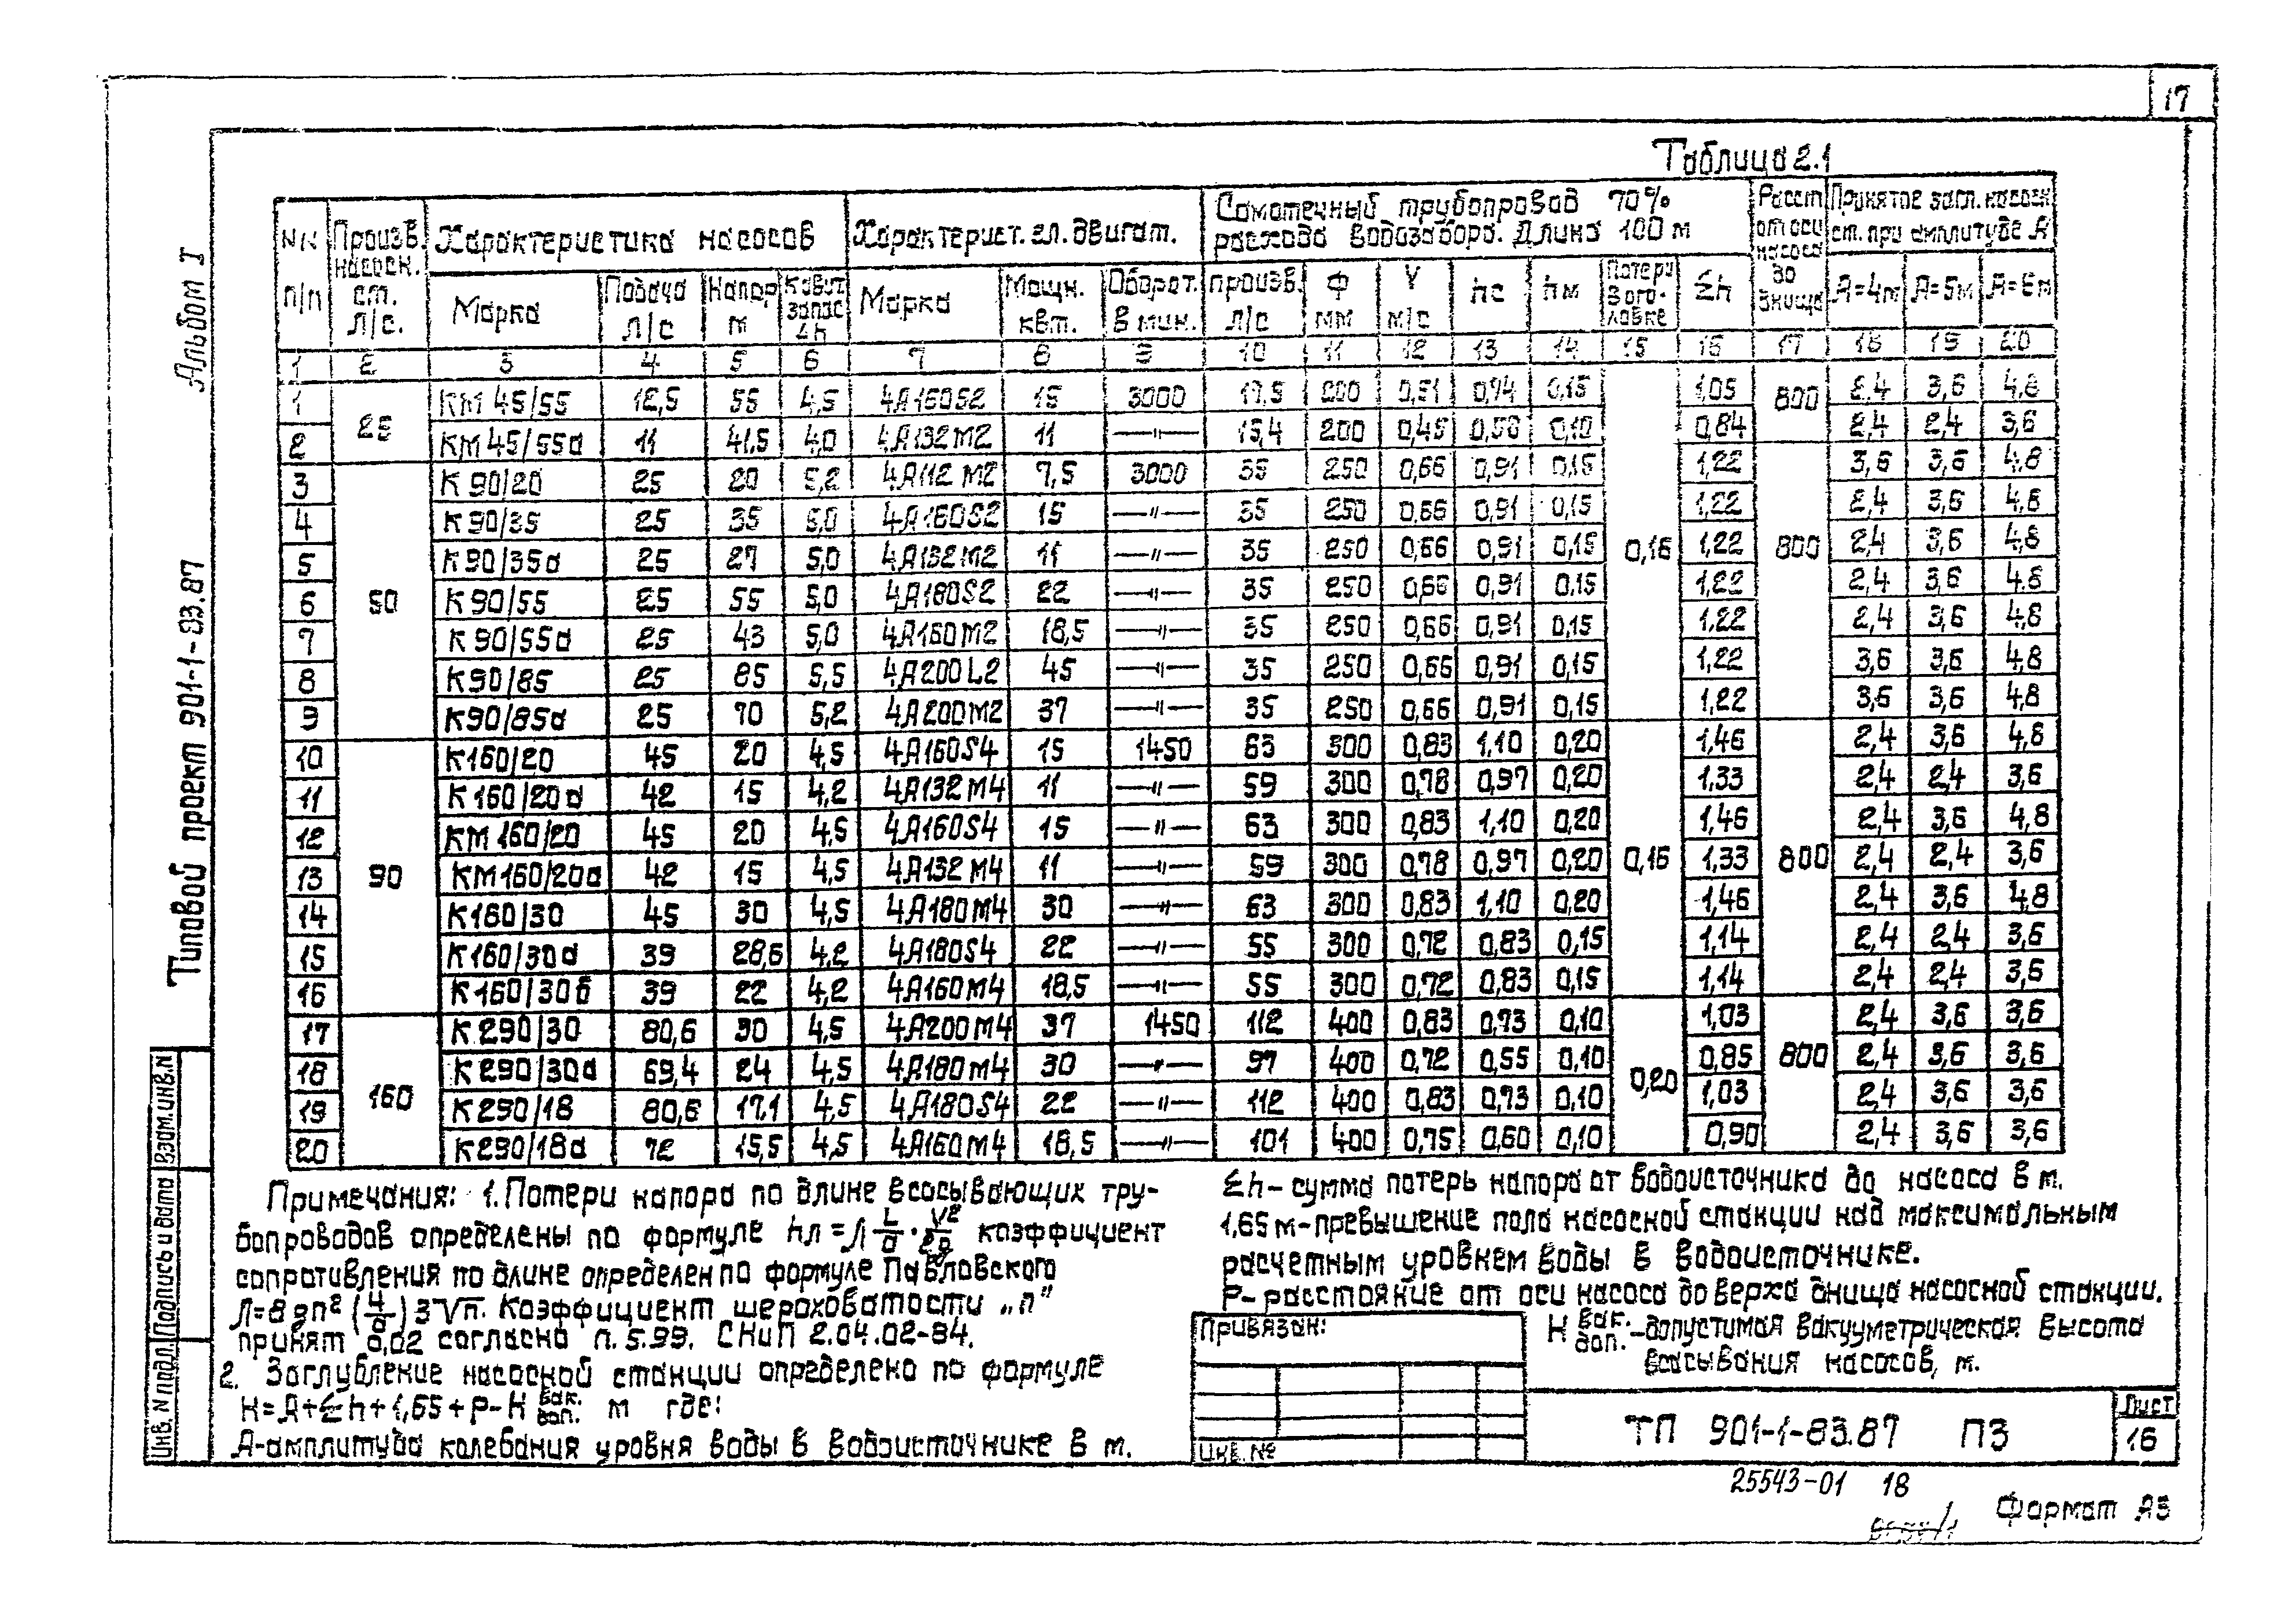 17
Альбом I
Типовой проект 901-1-83.87
Взам.инв.N
Подпись и дата
Инв. N подл.
Таблица 2.1
NN п/п | Произв. насосн. ст. л/с. | Характеристика насосов | Характерист. эл. двигат. | Самотечный трубопровод 70% расхода водозабора. Длина 100 м | Расст от оси насоса до днища | Принятое загл. насосн ст. при амплитуде А
Марка | Подача л/с | Напор м | Кавит. запас Δh | Марка | Мощн. квт. | Оборот. в мин. | произв. л/с | Ф мм | V м/с | hс | hм | Потери в оголовке | Σh | А=4м | А=5м | А=6м
1 | 2 | 3 | 4 | 5 | 6 | 7 | 8 | 9 | 10 | 11 | 12 | 13 | 14 | 15 | 16 | 17 | 18 | 19 | 20
1 | 25 | КМ 45/55 | 12,5 | 55 | 4,5 | 4А160S2 | 15 | 3000 | 17,5 | 200 | 0,51 | 0,74 | 0,15 | 0,16 | 1,05 | 800 | 2,4 | 3,6 | 4,8
2 | КМ 45/55а | 11 | 41,5 | 4,0 | 4А132М2 | 11 | —"— | 15,4 | 200 | 0,45 | 0,58 | 0,10 | 0,84 | 2,4 | 2,4 | 3,6
3 | 50 | К 90/20 | 25 | 20 | 5,2 | 4А112 М2 | 7,5 | 3000 | 35 | 250 | 0,66 | 0,91 | 0,15 | 1,22 | 800 | 3,6 | 3,6 | 4,8
4 | К 90/35 | 25 | 35 | 5,0 | 4А160S2 | 15 | —"— | 35 | 250 | 0,66 | 0,91 | 0,15 | 1,22 | 2,4 | 3,6 | 4,8
5 | К 90/35а | 25 | 27 | 5,0 | 4А132М2 | 11 | —"— | 35 | 250 | 0,66 | 0,91 | 0,15 | 1,22 | 2,4 | 3,6 | 4,8
6 | К 90/55 | 25 | 55 | 5,0 | 4А180S2 | 22 | —"— | 35 | 250 | 0,66 | 0,91 | 0,15 | 1,22 | 2,4 | 3,6 | 4,8
7 | К 90/55а | 25 | 43 | 5,0 | 4А160М2 | 18,5 | —"— | 35 | 250 | 0,66 | 0,91 | 0,15 | 1,22 | 2,4 | 3,6 | 4,8
8 | К90/85 | 25 | 85 | 5,5 | 4А200L2 | 45 | —"— | 35 | 250 | 0,66 | 0,91 | 0,15 | 1,22 | 3,6 | 3,6 | 4,8
9 | К90/85а | 25 | 70 | 5,2 | 4А200М2 | 37 | —"— | 35 | 250 | 0,66 | 0,91 | 0,15 | 1,22 | 3,6 | 3,6 | 4,8
10 | 90 | К160/20 | 45 | 20 | 4,5 | 4А160S4 | 15 | 1450 | 63 | 300 | 0,83 | 1,10 | 0,20 | 0,16 | 1,46 | 800 | 2,4 | 3,6 | 4,8
11 | К 160/20а | 42 | 15 | 4,2 | 4А132М4 | 11 | —"— | 59 | 300 | 0,78 | 0,97 | 0,20 | 1,33 | 2,4 | 2,4 | 3,6
12 | КМ 160/20 | 45 | 20 | 4,5 | 4А160S4 | 15 | —"— | 63 | 300 | 0,83 | 1,10 | 0,20 | 1,46 | 2,4 | 3,6 | 4,8
13 | КМ160/20а | 42 | 15 | 4,5 | 4А132 М4 | 11 | —"— | 59 | 300 | 0,78 | 0,97 | 0,20 | 1,33 | 2,4 | 2,4 | 3,6
14 | К160/30 | 45 | 30 | 4,5 | 4А180М4 | 30 | —"— | 63 | 300 | 0,83 | 1,10 | 0,20 | 1,46 | 2,4 | 3,6 | 4,8
15 | К160/30а | 39 | 28,6 | 4,2 | 4А180S4 | 22 | —"— | 55 | 300 | 0,72 | 0,83 | 0,15 | 1,14 | 2,4 | 2,4 | 3,6
16 | К160/30б | 39 | 22 | 4,2 | 4А160М4 | 18,5 | —"— | 55 | 300 | 0,72 | 0,83 | 0,15 | 1,14 | 2,4 | 2,4 | 3,6
17 | 160 | К 290/30 | 80,6 | 30 | 4,5 | 4А200М4 | 37 | 1450 | 112 | 400 | 0,83 | 0,73 | 0,10 | 0,20 | 1,03 | 800 | 2,4 | 3,6 | 3,6
18 | К 290/30а | 69,4 | 24 | 4,5 | 4А180М4 | 30 | —"— | 97 | 400 | 0,72 | 0,55 | 0,10 | 0,85 | 2,4 | 3,6 | 3,6
19 | К290/18 | 80,6 | 17,1 | 4,5 | 4А180S4 | 22 | —"— | 112 | 400 | 0,83 | 0,73 | 0,10 | 1,03 | 2,4 | 3,6 | 3,6
20 | К290/18а | 72 | 15,5 | 4,5 | 4А160М4 | 18,5 | —"— | 101 | 400 | 0,75 | 0,60 | 0,10 | 0,90 | 2,4 | 3,6 | 3,6
Примечания: 1. Потери напора по длине всасывающих тру-
бопроводов определены по формуле hл=Л L/d · V²/2g коэффициент
сопротивления по длине определен по формуле Павловского
Л=8gn² (4/d) 3√n. Коэффициент шероховатости „n"
принят 0,02 согласно п. 5.99. СНиП 2.04.02-84.
2. Заглубление насосной станции определено по формуле
Н=А+Σh+1,65+Р-Н вак. доп. м где:
А-амплитуда колебания уровня воды в водоисточнике в м.
Σh-сумма потерь напора от водоисточника до насоса в м.
1,65м-превышение пола насосной станции над максимальным
расчетным уровнем воды в водоисточнике.
Р-расстояние от оси насоса до верха днища насосной станции.
Н вак. доп. -допустимая вакууметрическая высота
всасывания насосов, м.
Привязан:
Инв. №
ТП 901-1-83.87 ПЗ
Лист
16
25543-01 18
Формат А3